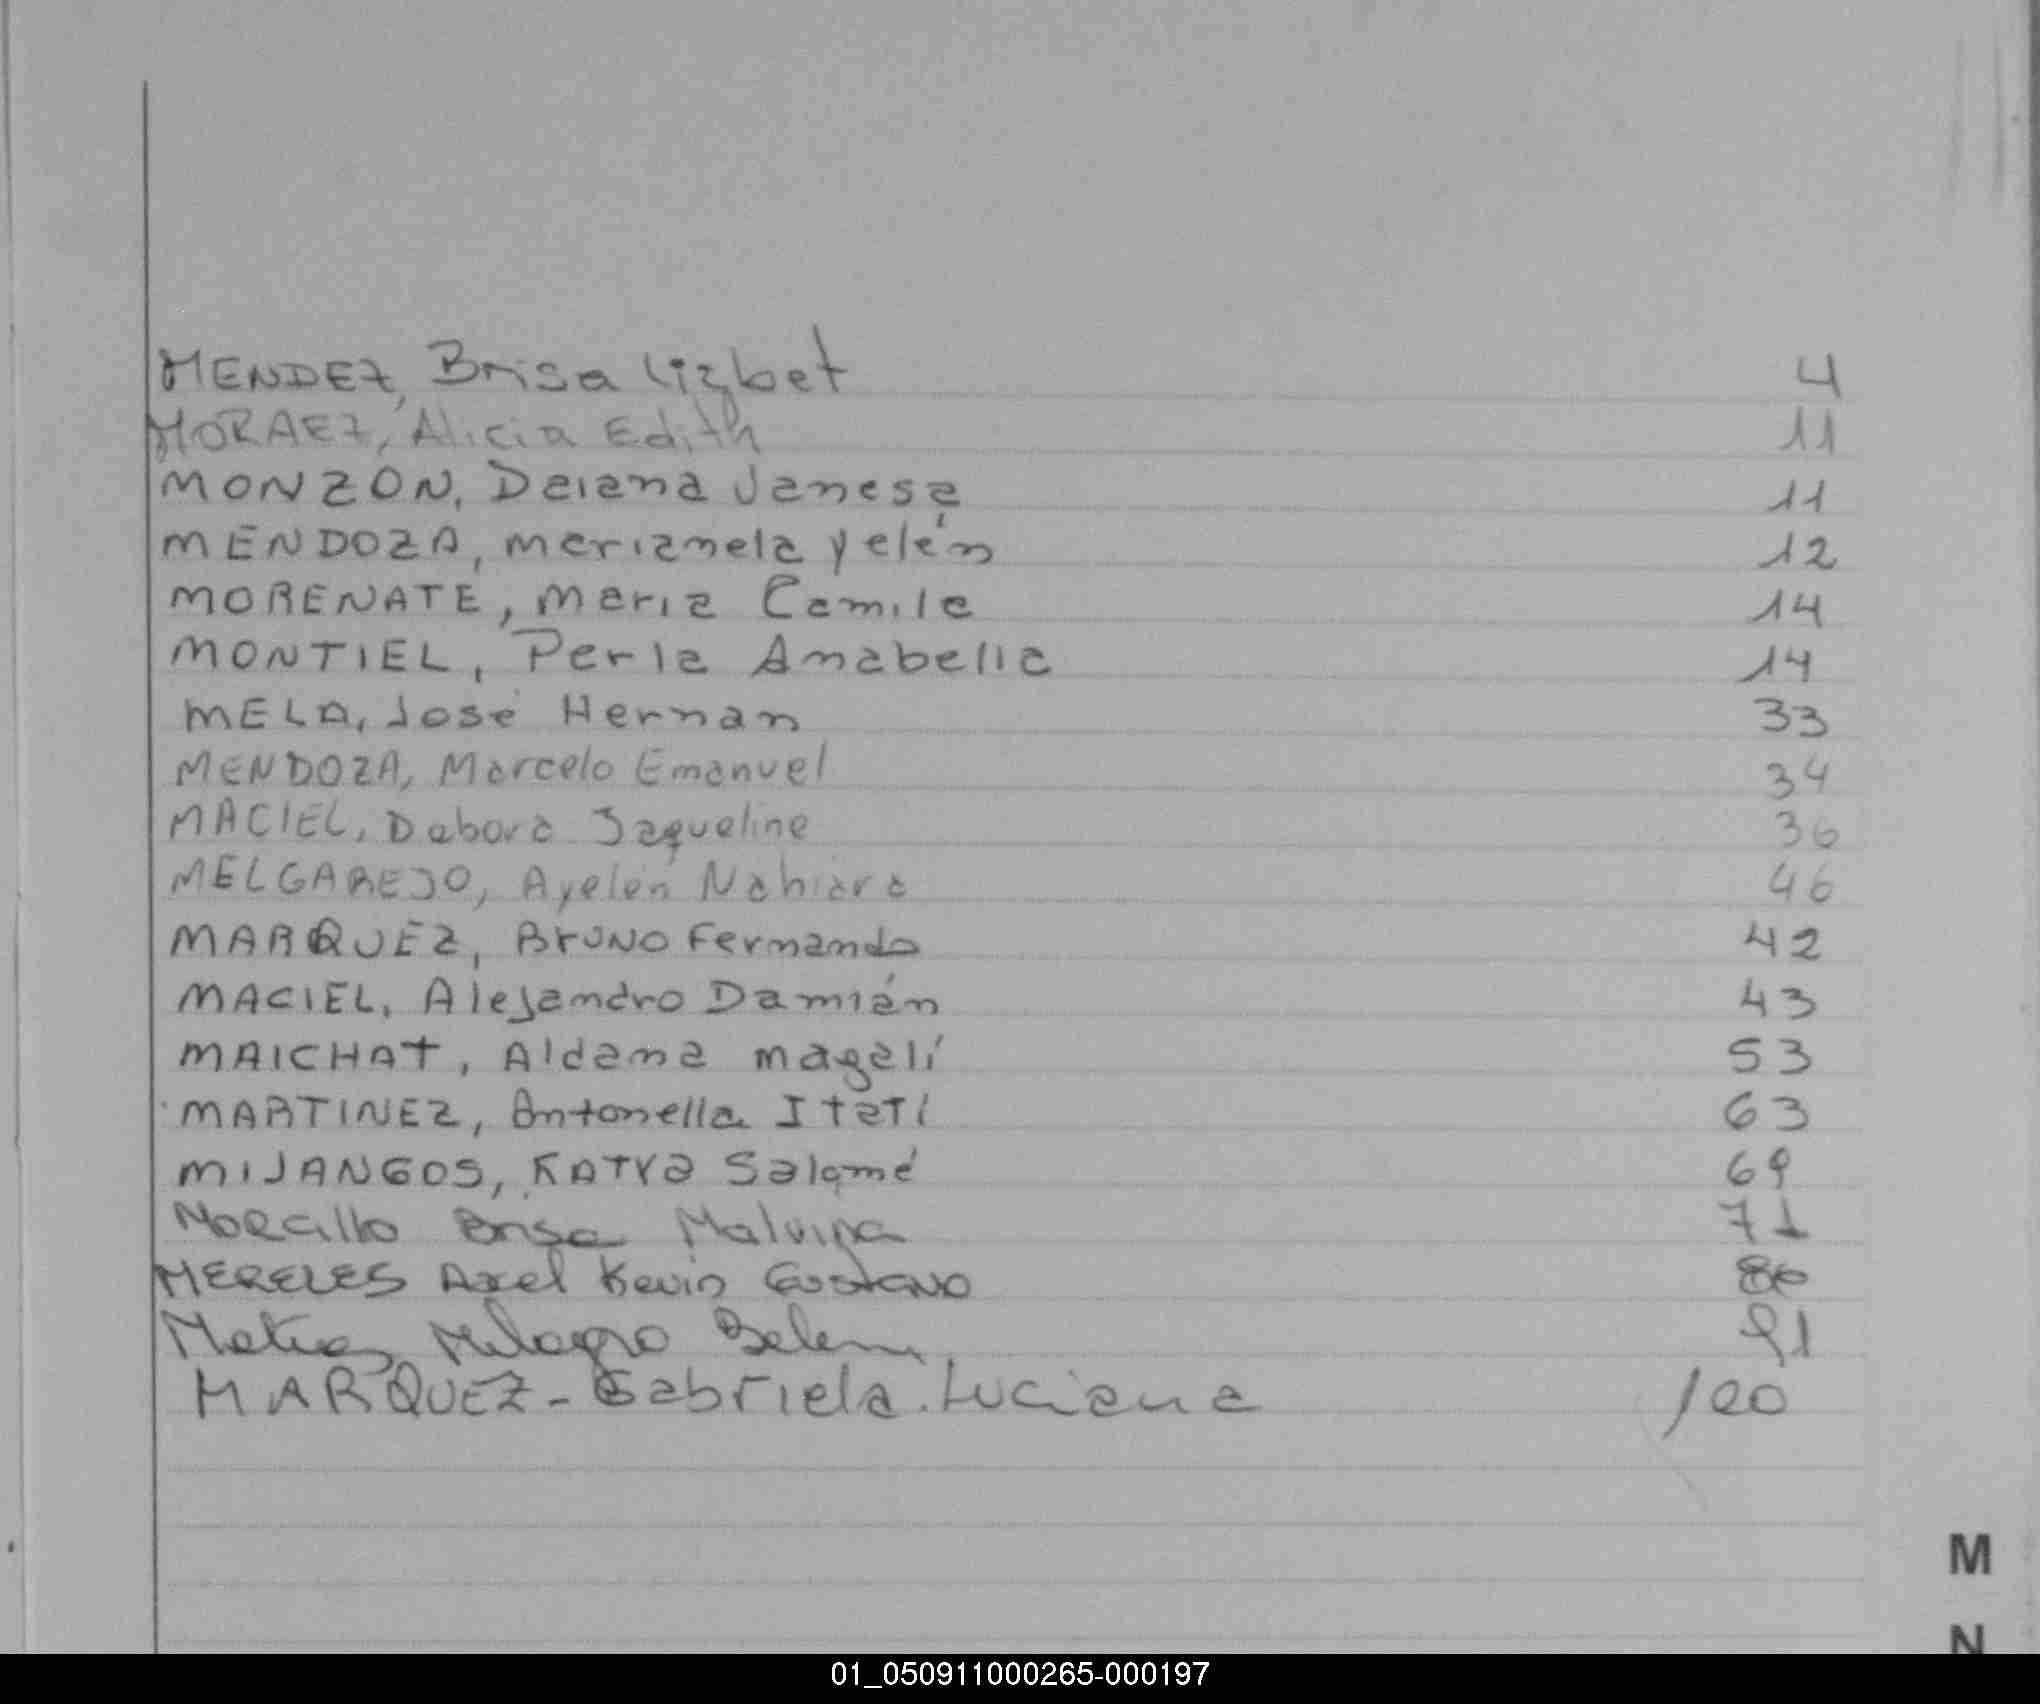 MENDEZ, Brisa Lizbet 4
MORAEZ, Alicia Edith 11
MONZON, Daiana Janesa 11
MENDOZA, Marianela Yelén 12
MORENATE, Maria Camila 14
MONTIEL, Perla Anabella 14
MELA, José Hernan 33
MENDOZA, Marcelo Emanuel 34
MACIEL, Debora Jaqueline 36
MELGAREJO, Ayelén Nahiara 46
MARQUEZ, Bruno Fernando 42
MACIEL, Alejandro Damián 43
MAICHAT, Aldana Magalí 53
MARTINEZ, Antonella Itatí 63
MIJANGOS, Katya Salomé 69
Morcillo Brisa Malvina 71
MERELES Axel Kevin Gustavo
Milagro Belen 91
MARQUEZ - Gabriela. Luciana 100
M
N
01_050911000265-000197